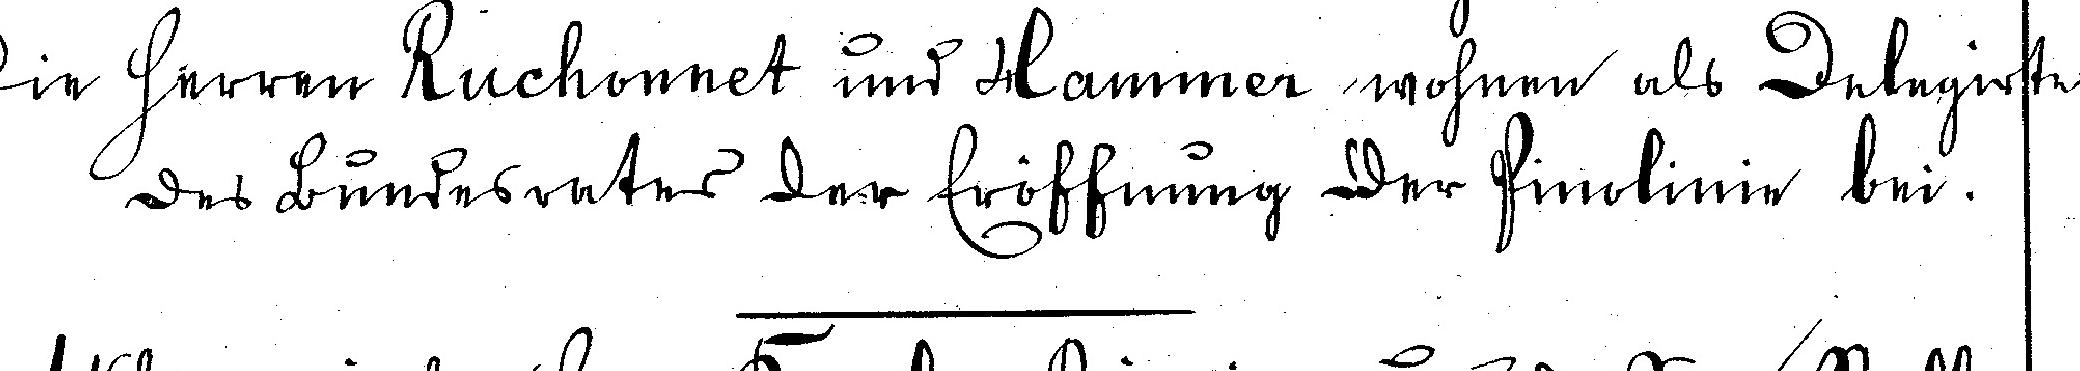 Die Herren Ruchonnet und Hammer wohnen als Delegirte
des Bundesrates der Eröffnung der Pinolinie bei.